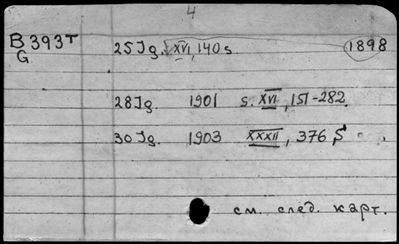 4
B393T 25 Jg. XVI, 140 s. 1898
G.
28 Jg. 1901 s. XVI, 151-282.
30 Jg. 1903 XXXII, 376, S
см. след. карт.